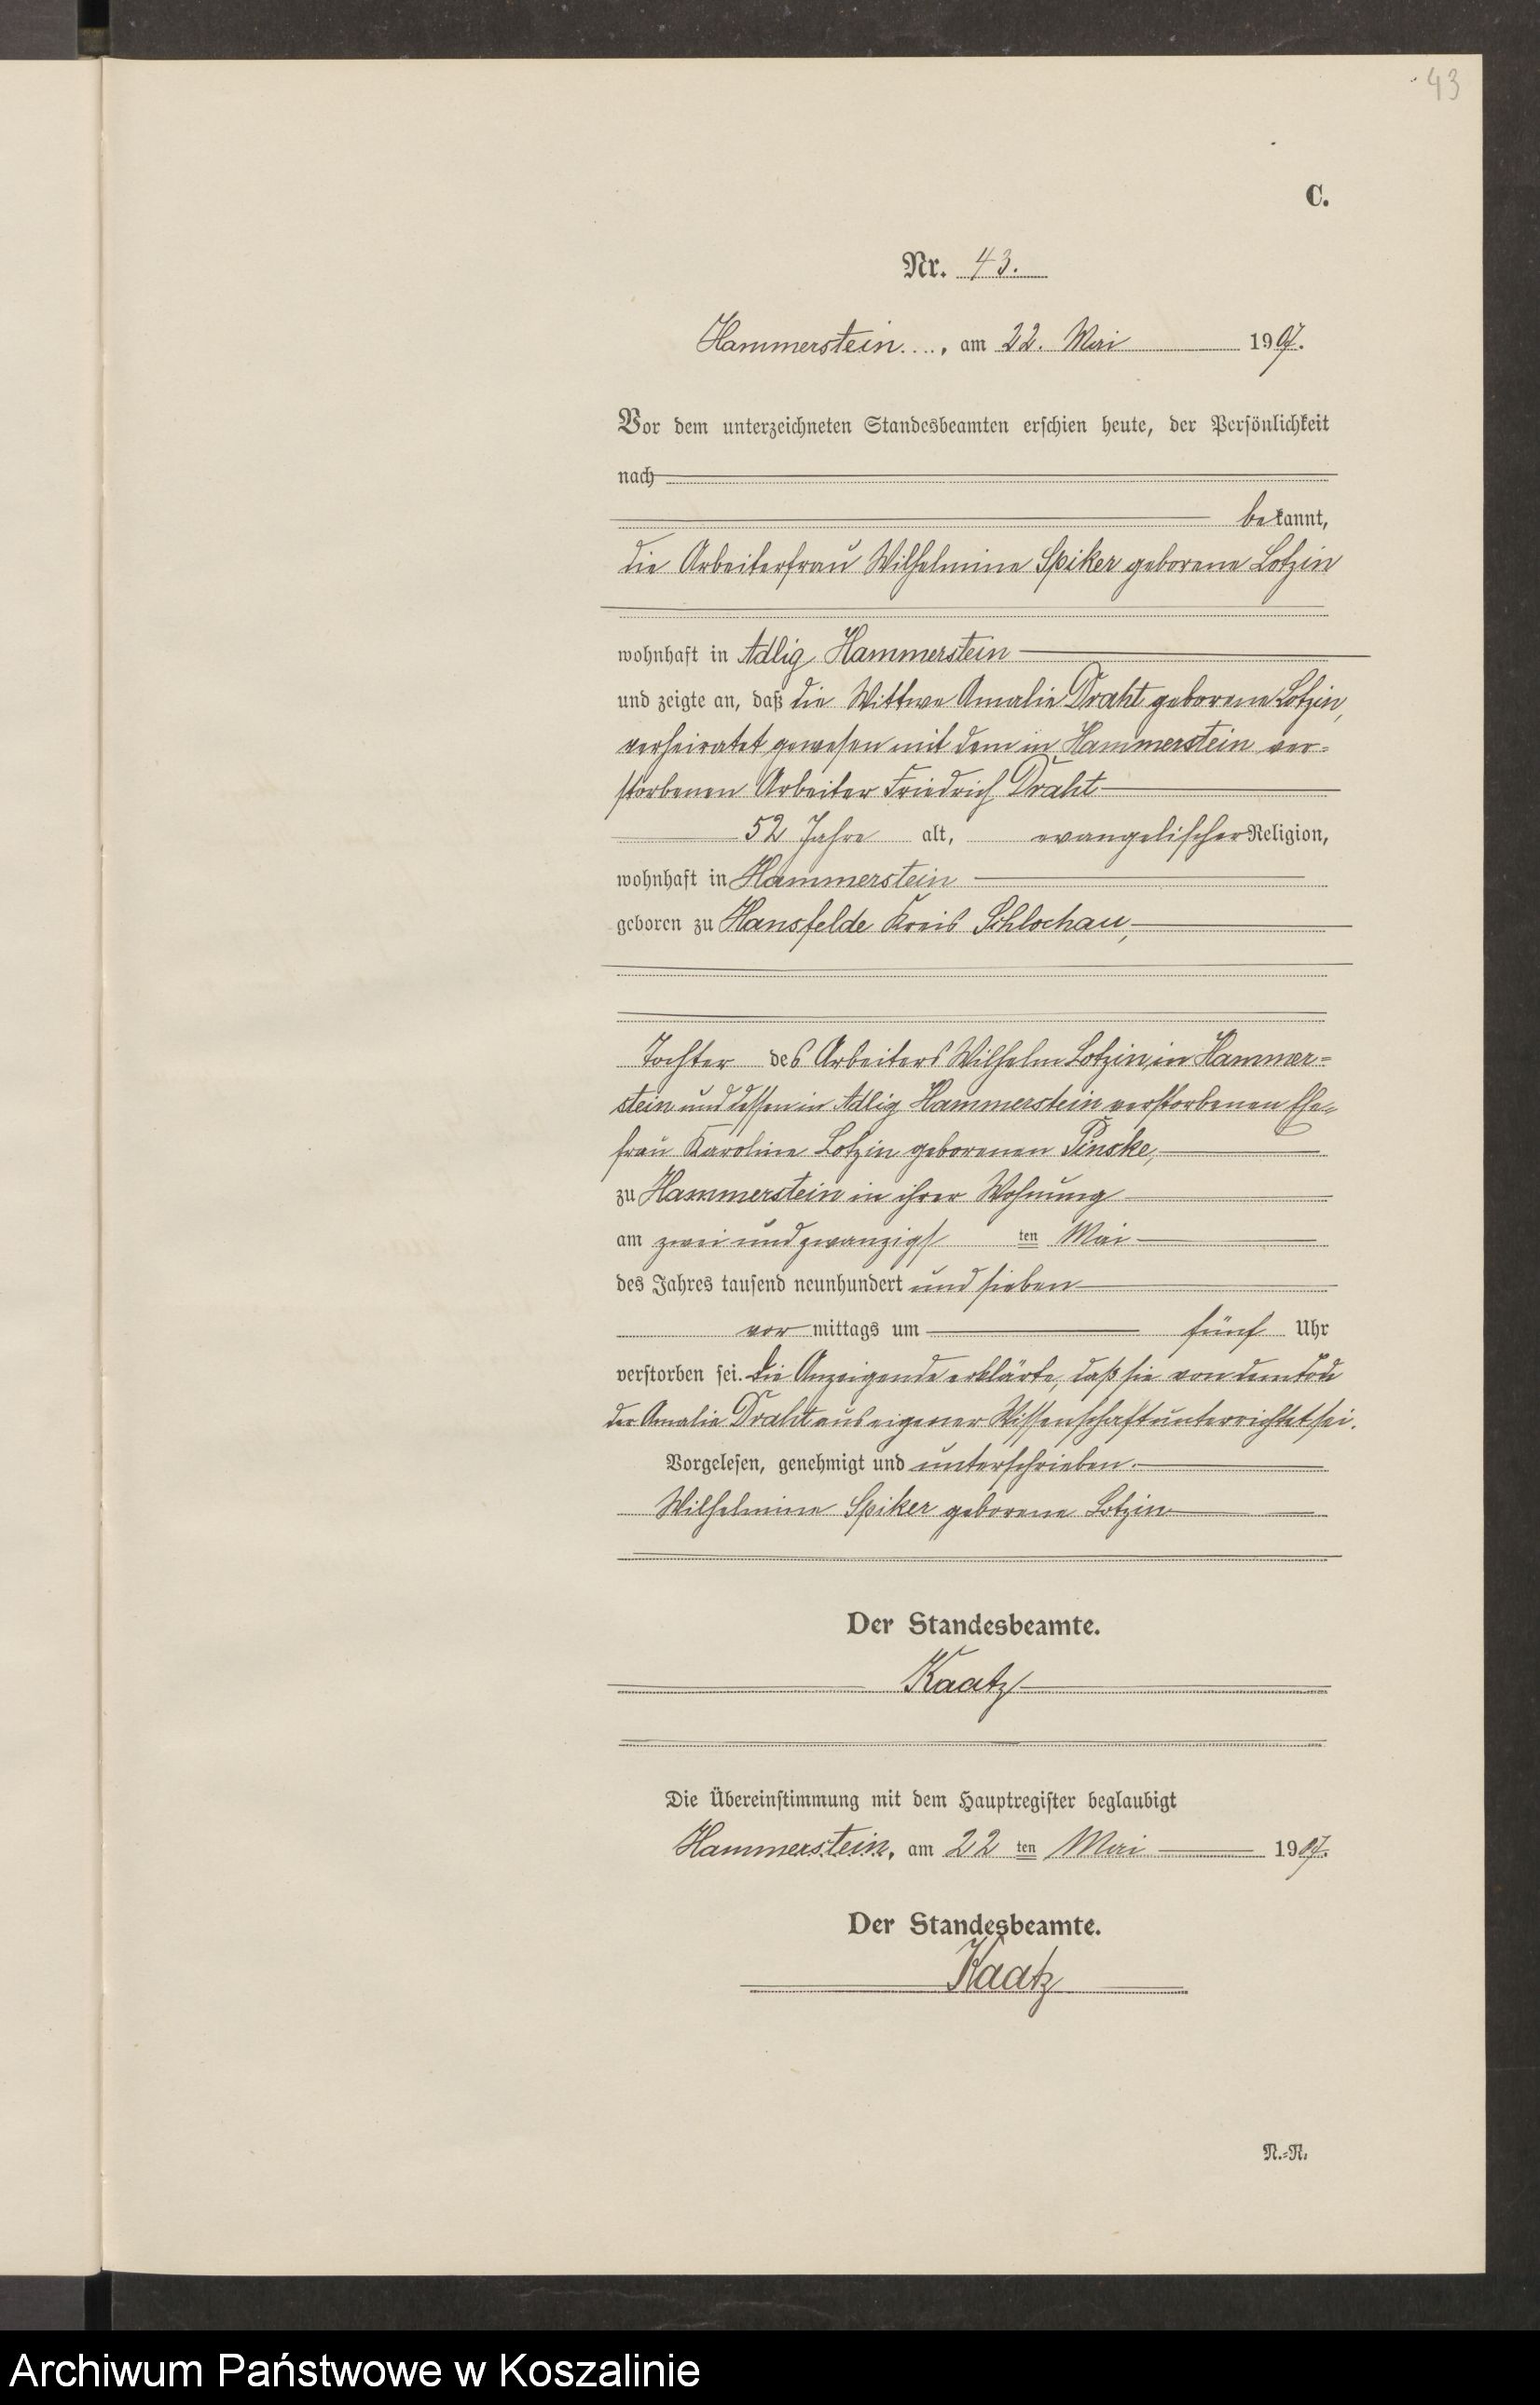 43
C.
Nr. 43.
Hammerstein...., am 22. Mai 1907.
Vor dem unterzeichneten Standesbeamten erschien heute, der Persönlichkeit
nach
bekannt,
die Arbeiterfrau Wilhelmine Spiker geborene Lotzin
wohnhaft in Adlig Hammerstein
und zeigte an, daß die Wittwe Amalie Draht geborene Lotzin,
verheiratet gewesen mit dem in Hammerstein ver-
storbenen Arbeiter Friedrich Draht
52 Jahre alt, evangelischer Religion,
wohnhaft in Hammerstein
geboren zu Hansfelde Kreis Schlochau,
Tochter des Arbeiters Wilhelm Lotzin in Hammer-
stein und dessen in Adlig Hammerstein verstorbenen Ehe-
frau Karoline Lotzin geborenen Pinske,
zu Hammerstein in ihrer Wohnung
am zwei und zwanzigsten Mai
des Jahres tausend neunhundert und sieben
vor mittags um fünf Uhr
verstorben sei. Die Anzeigende erklärte, daß sie von dem Tode
der Amalie Draht aus eigener Wissenschaft unterrichtet sei.
Vorgelesen, genehmigt und unterschrieben.
Wilhelmine Spiker geborene Lotzin
Der Standesbeamte.
Kaatz
Die Übereinstimmung mit dem Hauptregister beglaubigt
Hammerstein, am 22 ten Mai 1907.
Der Standesbeamte.
Kaatz
N.-R.
Archiwum Państwowe w Koszalinie